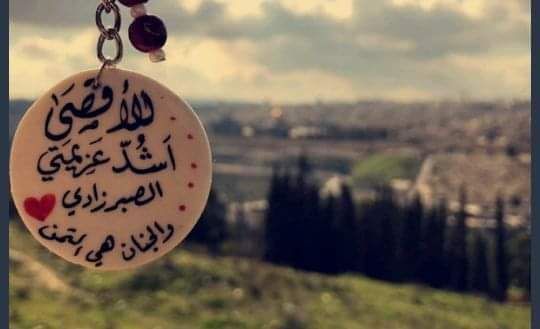 للأقصَى
أَشُدّ عَزيمَتي
الصبر زادي
والجنان هي الثمن